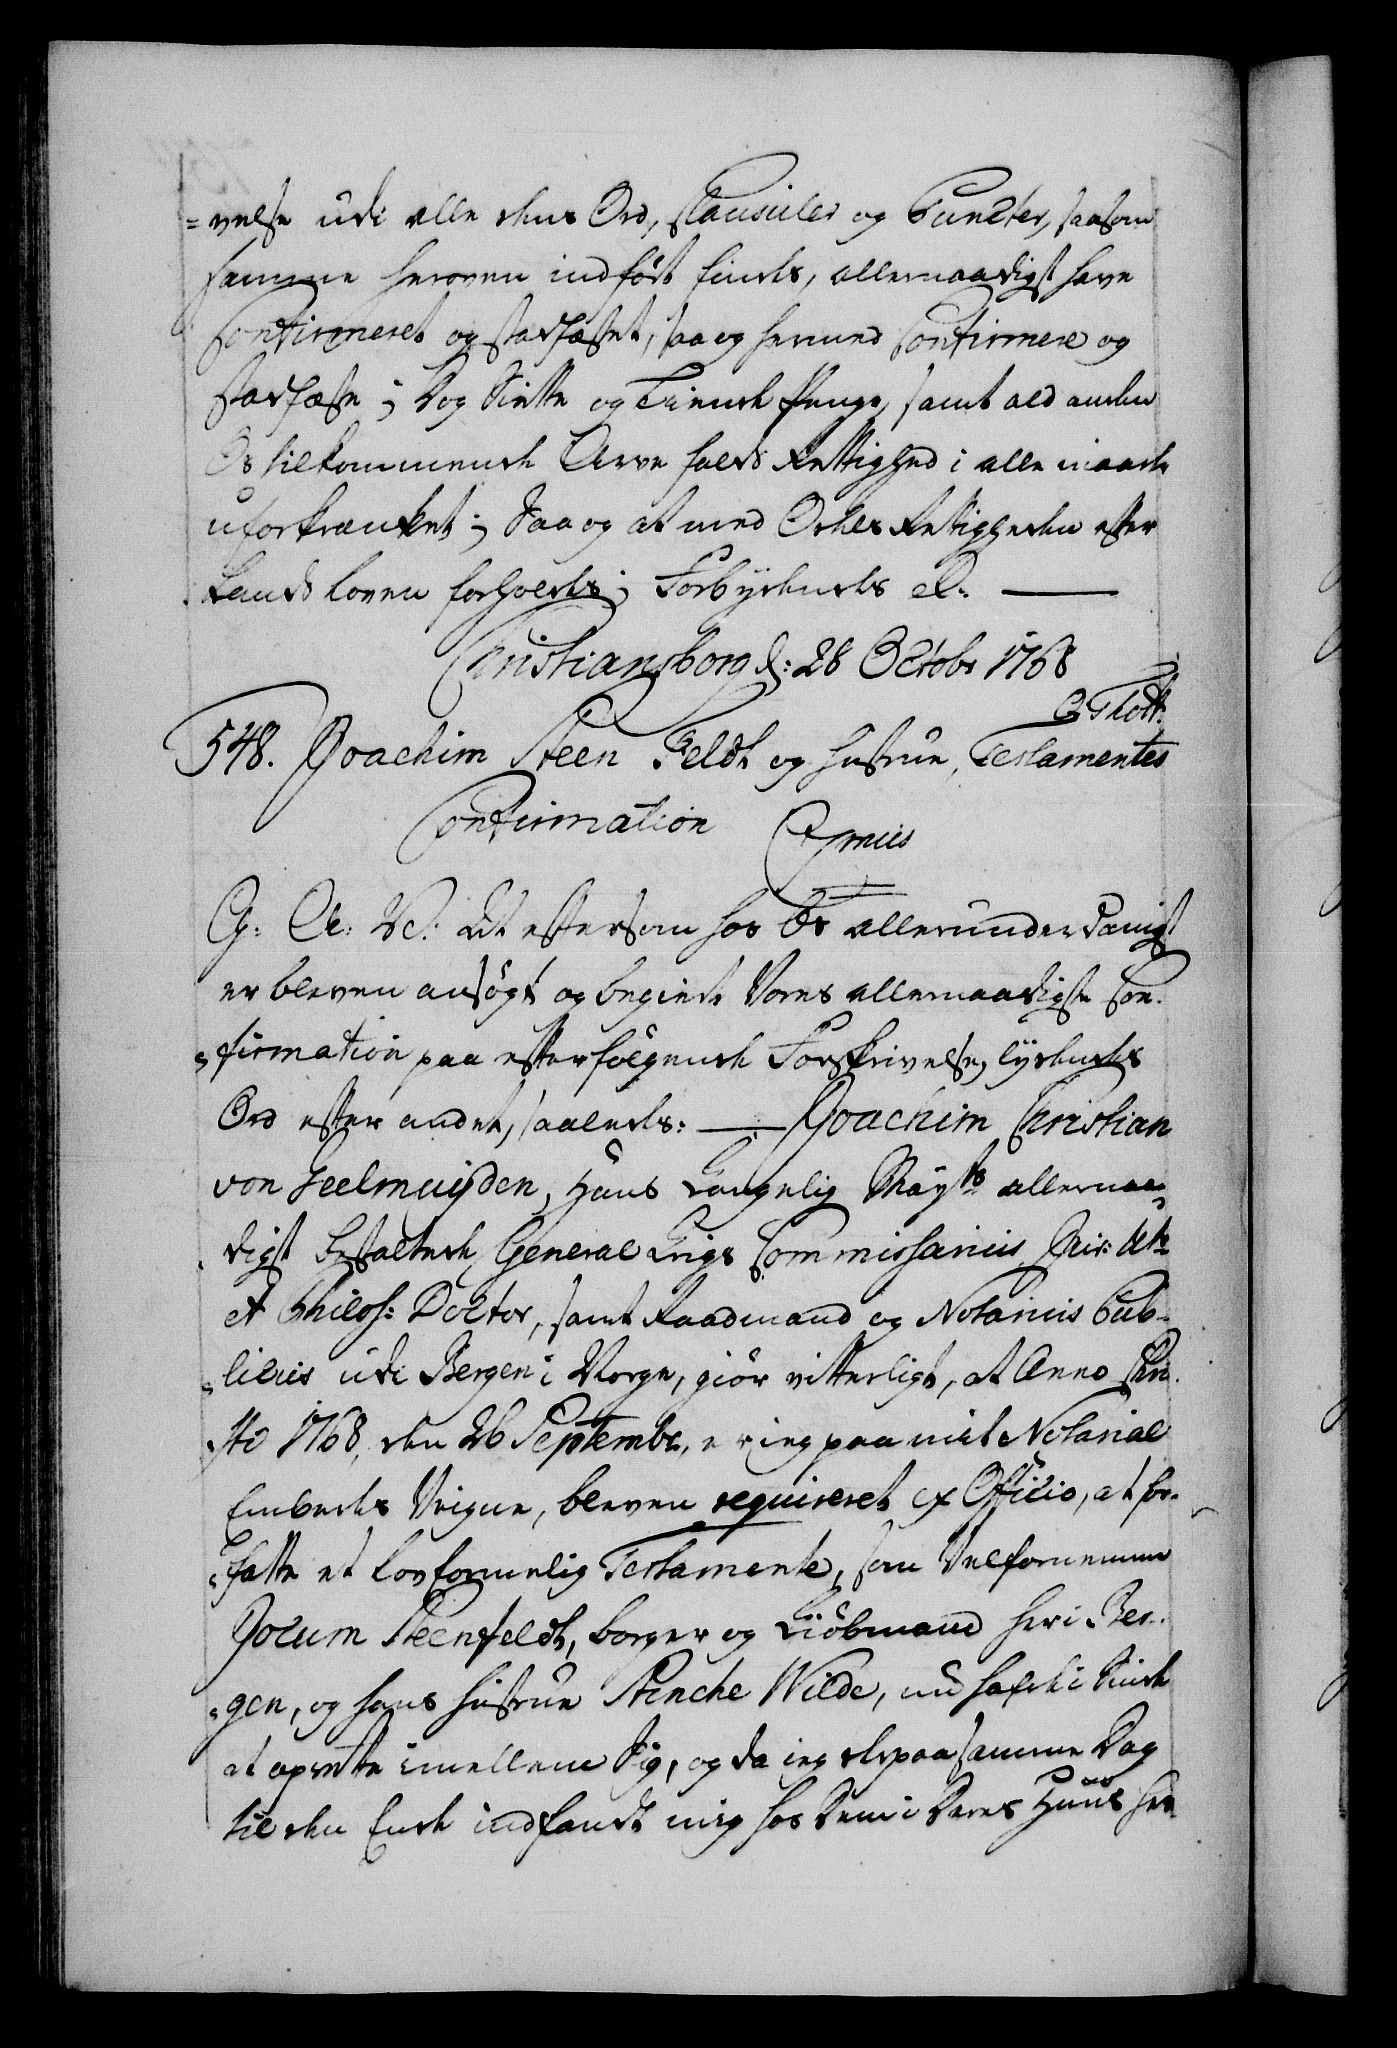 =velse udi alle dens Ord, Clausuler og Puncter, saasom
samme heroven indført findes, allernaadigst have
Confirmeret og stadfæstet, saa og hermed Confirmere og
stadfæste; Dog Siette og Tiende Penge, samt ald anden
Os tilkommende Arve falds Rettighed i alle maade
uforkrænket; Saa og at med Odels Rettigheden efter
Lands loven forholdes; Forbydendes &c. ———
Christiansborg d: 28 Octobr 1768
O Thott.
548. Joachim Steen Feldt og Hustrue, Testamentes
Confirmation
G: A: V: At eftersom hos Os allerunderdanigst
er bleven ansögt og begiert Vores allernaadigste Con-
=firmation paa efterfölgende Forskrivelse, lydendes
Ord efter andet, saaledes: — Joachim Christian
von Geelmuyden, Hans Kongelig Mayts allernaa=
digst bestaltede General Krigs Commissarius, Jur: utr:
et Philos: Doctor, samt Raadmand og Notarius Pub=
=licus udi Bergen i Norge, giör vitterligt, at Anno Chri-
sto 1768, den 26 Septembr, er ieg paa mit Notarial
Embedes Veigne, bleven requireret ex Officio, at for-
=fatte et lovformelig Testamente, som Velfornemme
Jocum Steenfeldt, borger og Kiöbmand her i Ber-
=gen, og hans Hustrue Stenche Wilde, nu hafde i Sinde
at oprette imellem Sig, og da ieg derpaa samme Dag
til den Ende indfandt mig hos Dem i Deres Huus her-